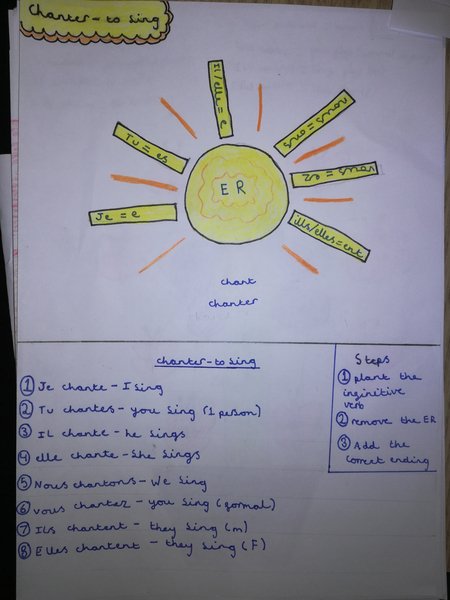 Chanter - to Sing
Il/elle = e
Tu = es
Je = e
nous = ons
vous = ez
ills/elles = ent
ER
chant
chanter
chanter - to sing
① Je chante - I sing
② Tu chantes - you sing (1 person)
③ Il chante - he sings
④ elle chante - She sings
⑤ Nous chantons - We sing
⑥ vous chantez - you sing (formal)
⑦ Ils chantent - they sing (m)
⑧ Elles chantent - they sing (F)
Steps
① plant the
infinitive
verb
② remove the ER
③ Add the
correct ending